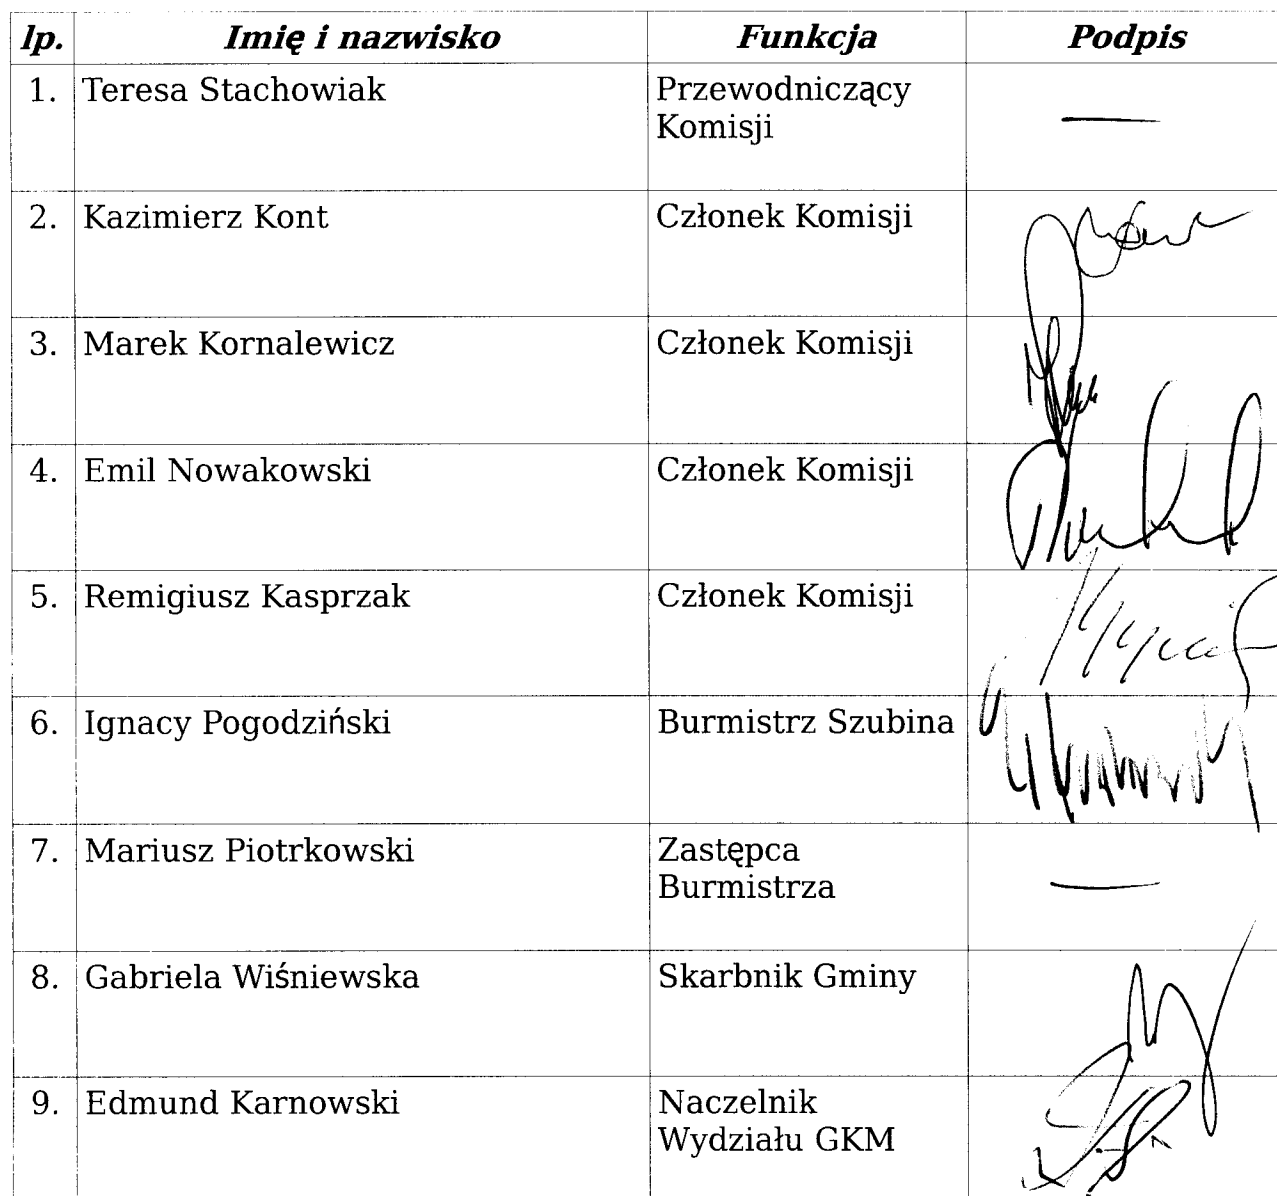 lp. Imię i nazwisko Funkcja Podpis
1. Teresa Stachowiak Przewodniczący
Komisji
2. Kazimierz Kont Członek Komisji
3. Marek Kornalewicz Członek Komisji
4. Emil Nowakowski Członek Komisji
5. Remigiusz Kasprzak Członek Komisji
6. Ignacy Pogodziński Burmistrz Szubina
7. Mariusz Piotrkowski Zastępca
Burmistrza
8. Gabriela Wiśniewska Skarbnik Gminy
9. Edmund Karnowski Naczelnik
Wydziału GKM